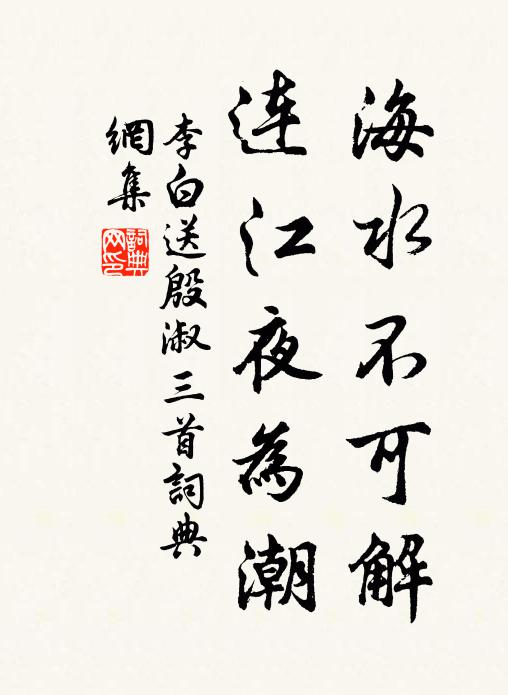 海水不可解
連江夜為潮
李白送殷淑三首詞典
網集
詞典網印